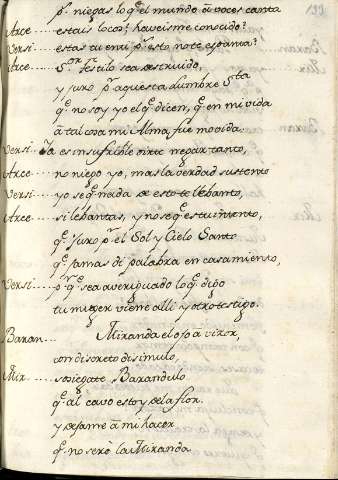 pr. niegas lo q.e el mundo â voces canta
Arce.... estais locos? haveisme conocido?
Versi.... estas tu en ti pr. esto no te espanta?
Arce...... Festilo sea destruido,
y juro pr. aquesta lumbre Sta
q.e no soy yo el q.e dicen, q.e en mi vida
â tal cosa mi Alma fue movida.
Versi.. Ya es insufrible oirte negar tanto,
Arce.... no niego yo, mas la verdad sustento
Versi.... yo se q.e nada de esto te lebanto,
Arce.... si lebantas, y no se q.e es tu intento,
q.e juro pr. el Sol y Cielo Santo
q.e jamas di palabra en casamiento,
Versi.... pr. q.e sea averiguado lo q.e digo
tu muger viene alli y otro testigo.
Baran... Miranda el ojo â visor,
con discreto disimulo,
Mir..... sosiegate Barandulo
q.e al cavo estoy de la flor.
y dejame â mi hacer
q.e no serè la Miranda